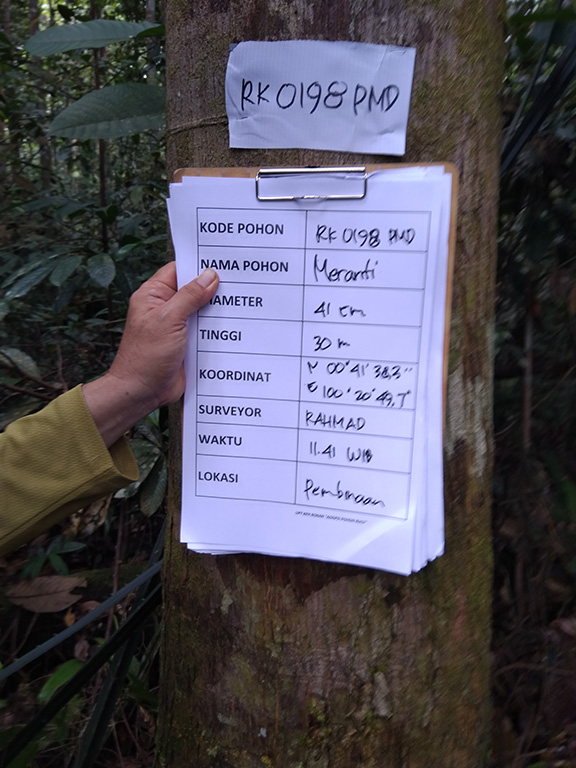 RK 0198 PMD
KODE POHON RK 0198 PMD
NAMA POHON Meranti
IAMETER 41 cm
TINGGI 30 m
KOORDINAT N 00°41'38,3"
E 100°20'49,7"
SURVEYOR RAHMAD
WAKTU 11.41 WIB
LOKASI Pembinaan